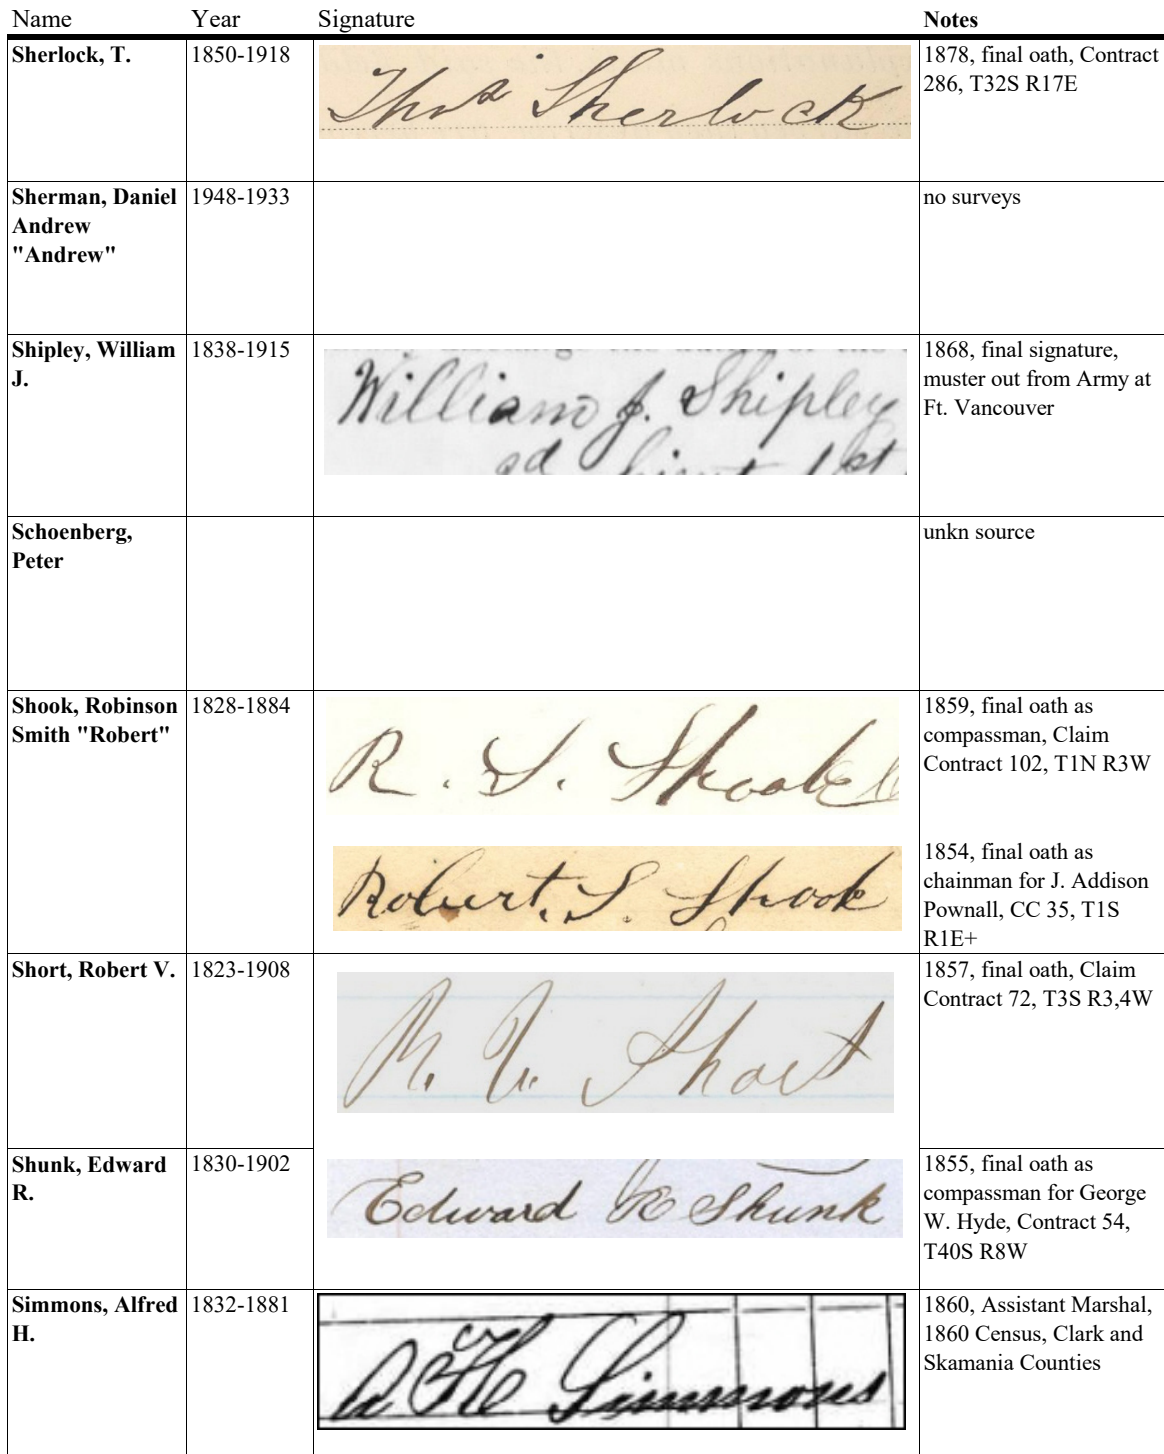 Name Year Signature Notes
Sherlock, T. 1850-1918 Thos Sherlock 1878, final oath, Contract
286, T32S R17E
Sherman, Daniel 1948-1933 no surveys
Andrew
"Andrew"
Shipley, William 1838-1915 William J. Shipley 1868, final signature,
J. muster out from Army at
Ft. Vancouver
Schoenberg, unkn source
Peter
Shook, Robinson 1828-1884 R. S. Shook 1859, final oath as
Smith "Robert" compassman, Claim
Contract 102, T1N R3W
Robert. S. Shook 1854, final oath as
chainman for J. Addison
Pownall, CC 35, T1S
R1E+
Short, Robert V. 1823-1908 R. V. Short 1857, final oath, Claim
Contract 72, T3S R3,4W
Shunk, Edward 1830-1902 Edward R Shunk 1855, final oath as
R. compassman for George
W. Hyde, Contract 54,
T40S R8W
Simmons, Alfred 1832-1881 A H Simmons 1860, Assistant Marshal,
H. 1860 Census, Clark and
Skamania Counties